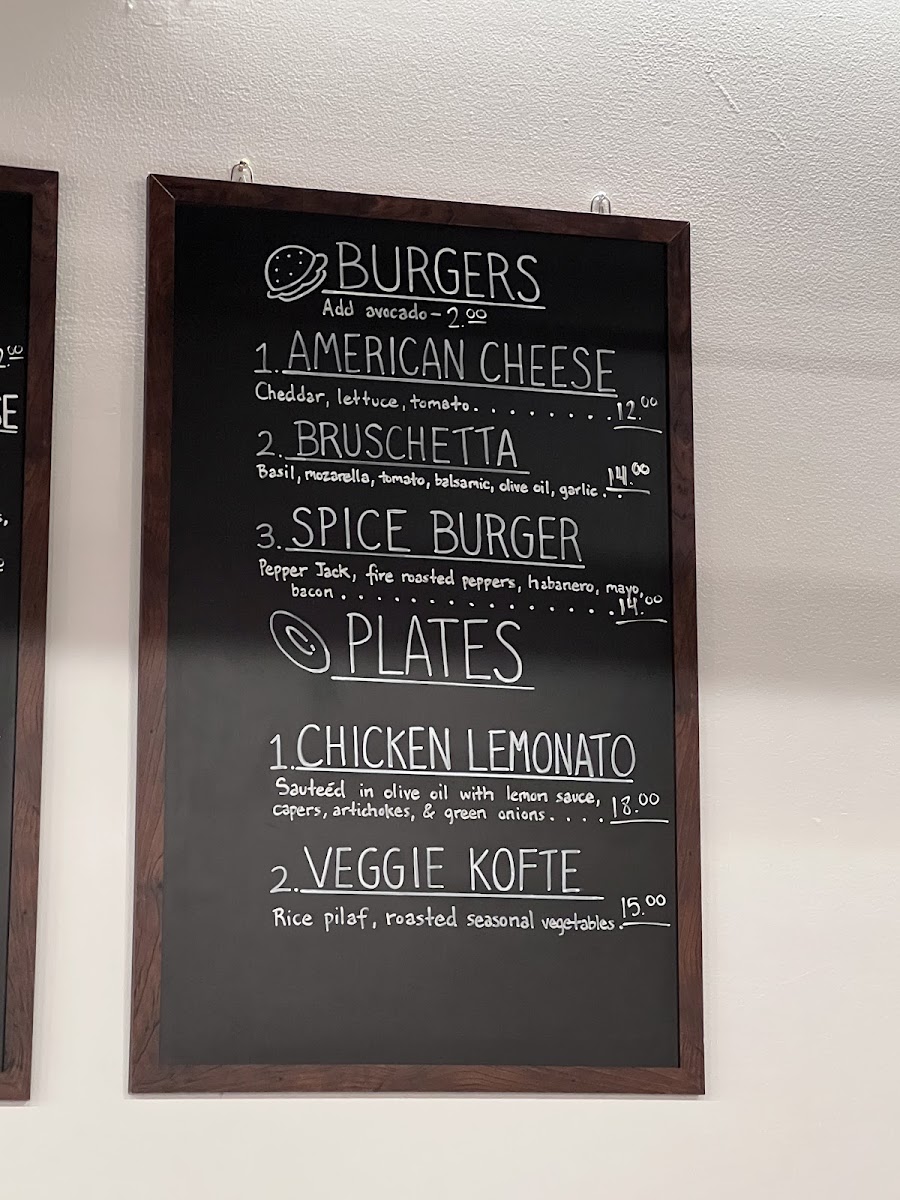 2.00
BURGERS
Add avocado - 2.00
1. AMERICAN CHEESE
Cheddar, lettuce, tomato. . . . . . . . . 12.00
2. BRUSCHETTA
Basil, mozarella, tomato, balsamic, olive oil, garlic . . 14.00
3. SPICE BURGER
Pepper Jack, fire roasted peppers, habanero, mayo,
bacon . . . . . . . . . . . . . . . . 14.00
PLATES
1. CHICKEN LEMONATO
Sauteéd in olive oil with lemon sauce,
capers, artichokes, & green onions. . . . 18.00
2. VEGGIE KOFTE
Rice pilaf, roasted seasonal vegetables. 15.00